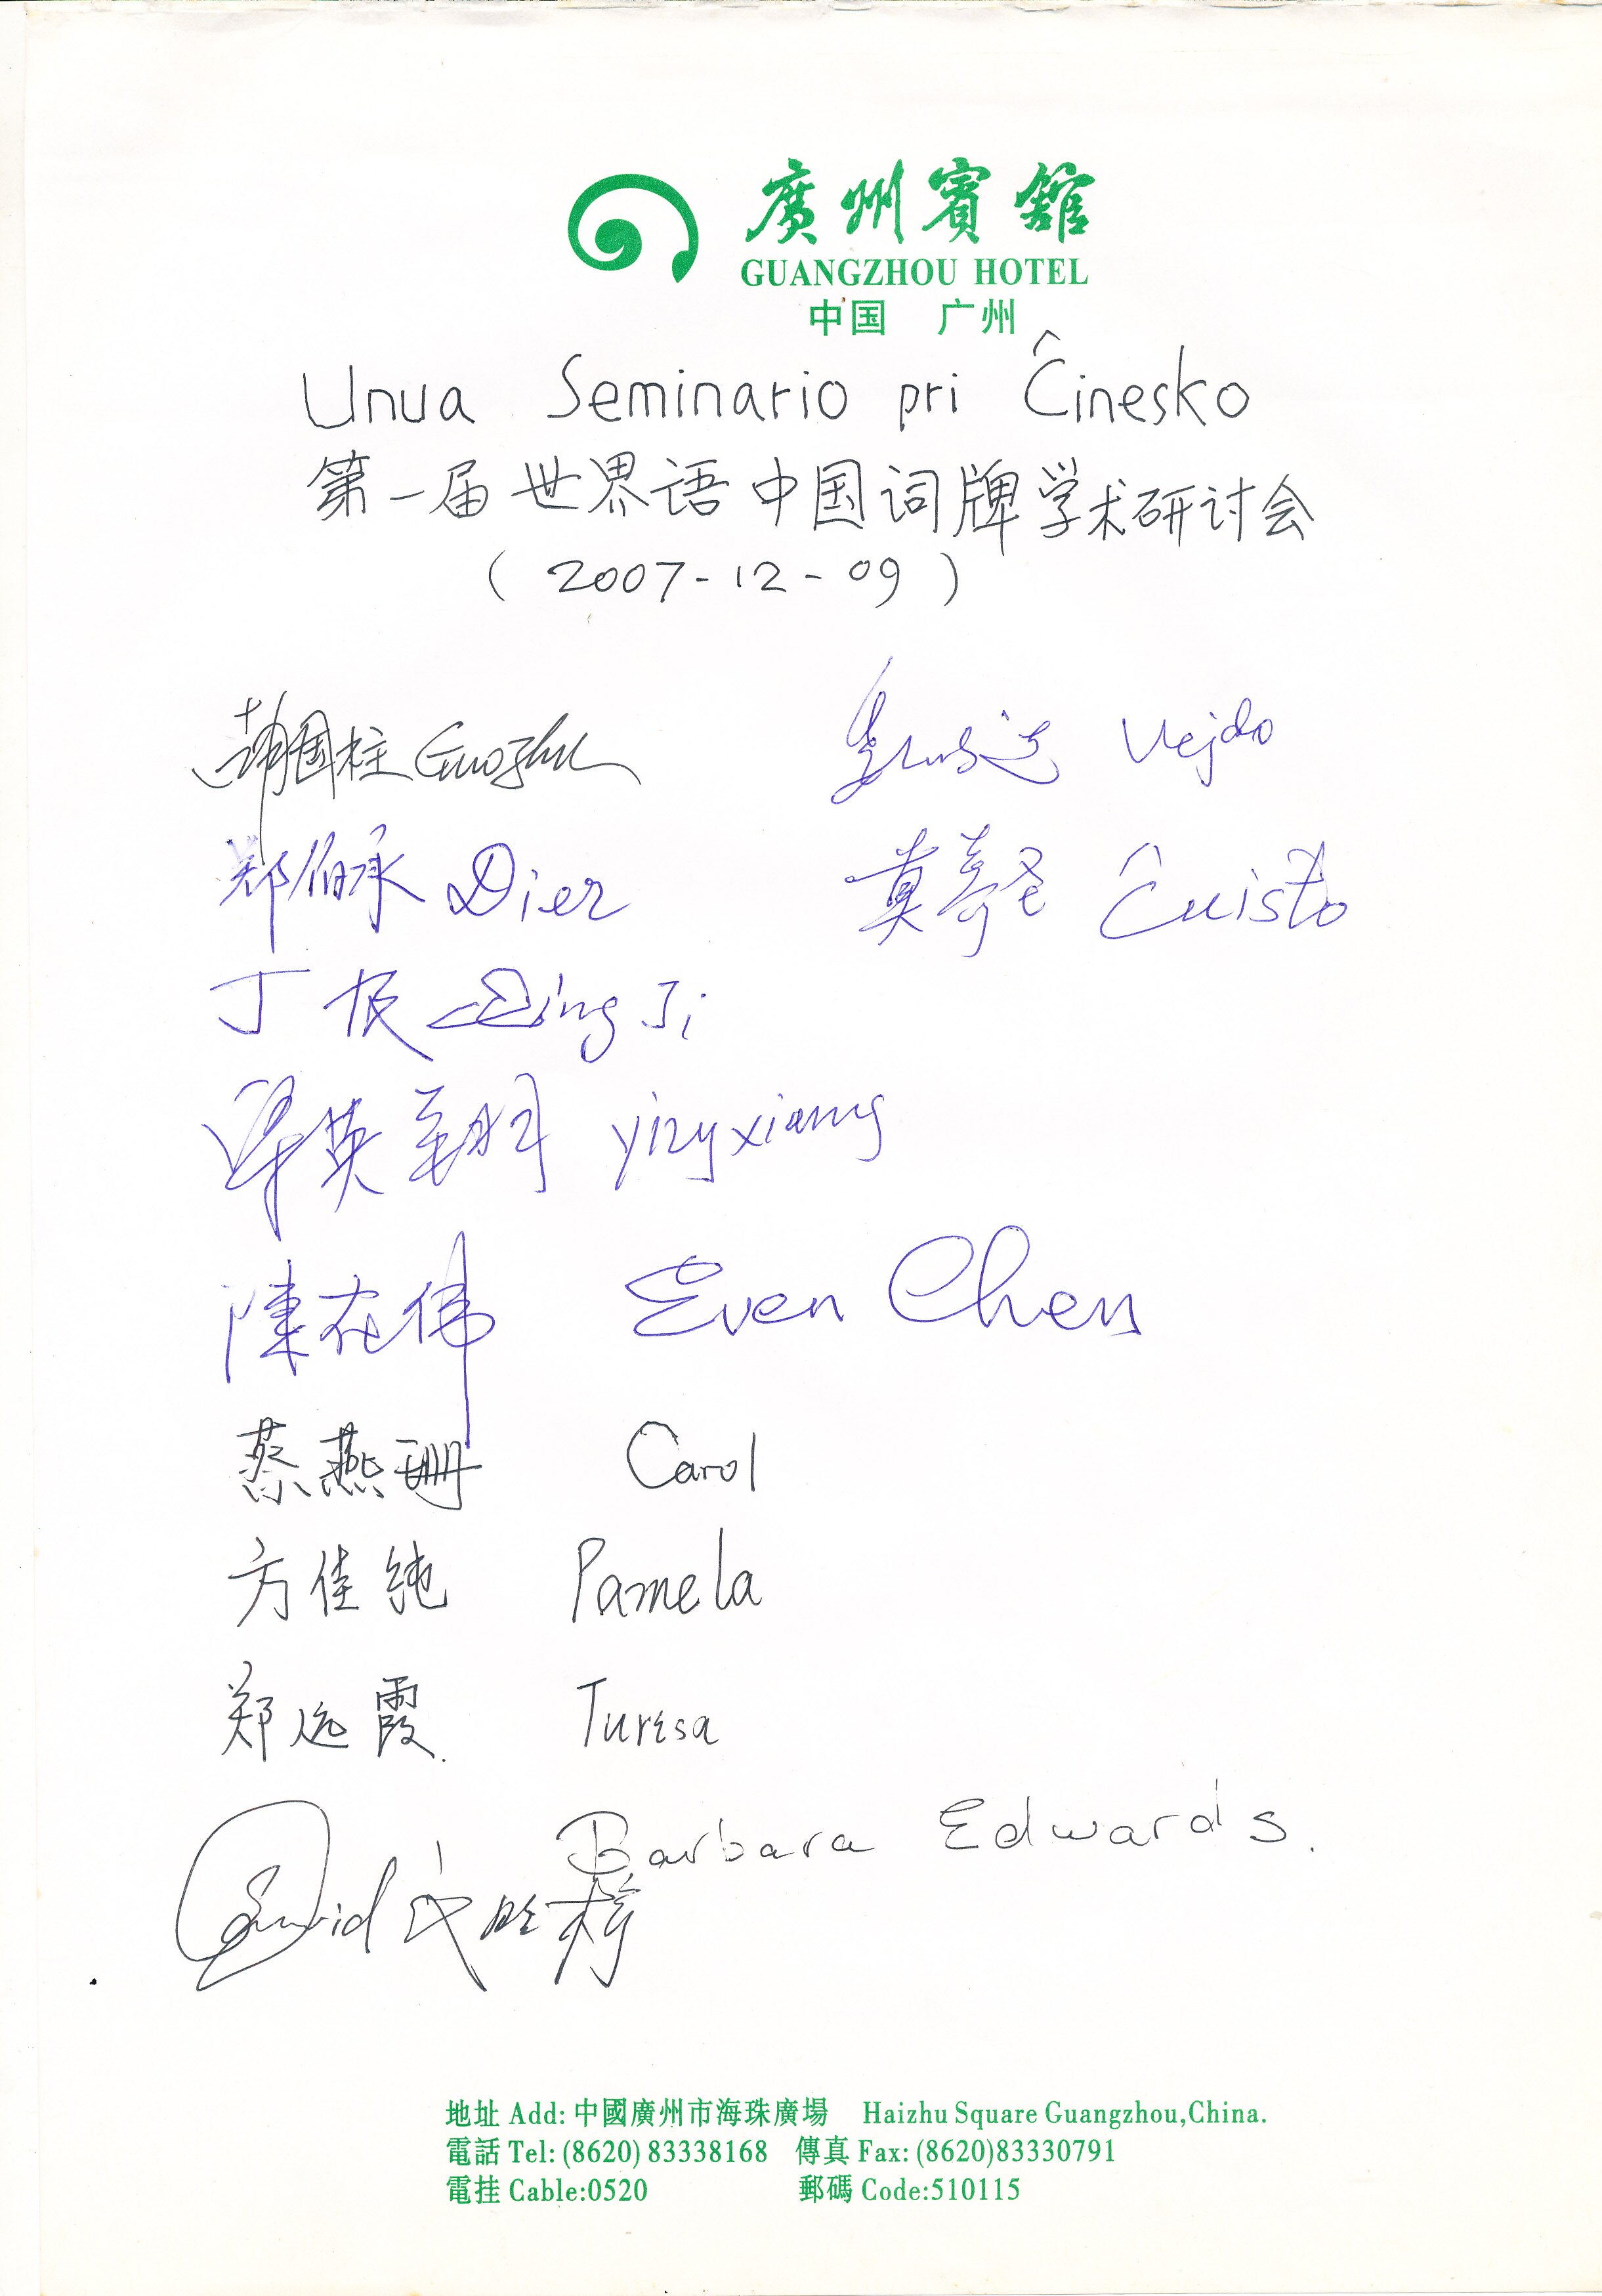 廣州賓館
GUANGZHOU HOTEL
中国 广州
Unua Seminario pri Ĉinesko
第一届世界语中国词牌学术研讨会
(2007-12-09)
国柱 Guozhu
Vejdo
郑伯承 Dier
莫奇圣 Ĉuisto
丁 Ding Ji
梁英翔 yingxiang
陳在伟 Even Chen
蔡燕珊 Carol
方佳纯 Pamela
郑远霞 Turesa
Barbara Edwards.
David
地址 Add: 中國廣州市海珠廣場 Haizhu Square Guangzhou,China.
電話 Tel: (8620) 83338168 傳真 Fax: (8620)83330791
電挂 Cable:0520 郵碼 Code:510115